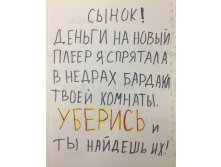 СЫНОК!
ДЕНЬГИ НА НОВЫЙ
ПЛЕЕР Я СПРЯТАЛА
В НЕДРАХ БАРДАКА
ТВОЕЙ КОМНАТЫ.
УБЕРИСЬ И
ТЫ НАЙДЕШЬ ИХ!